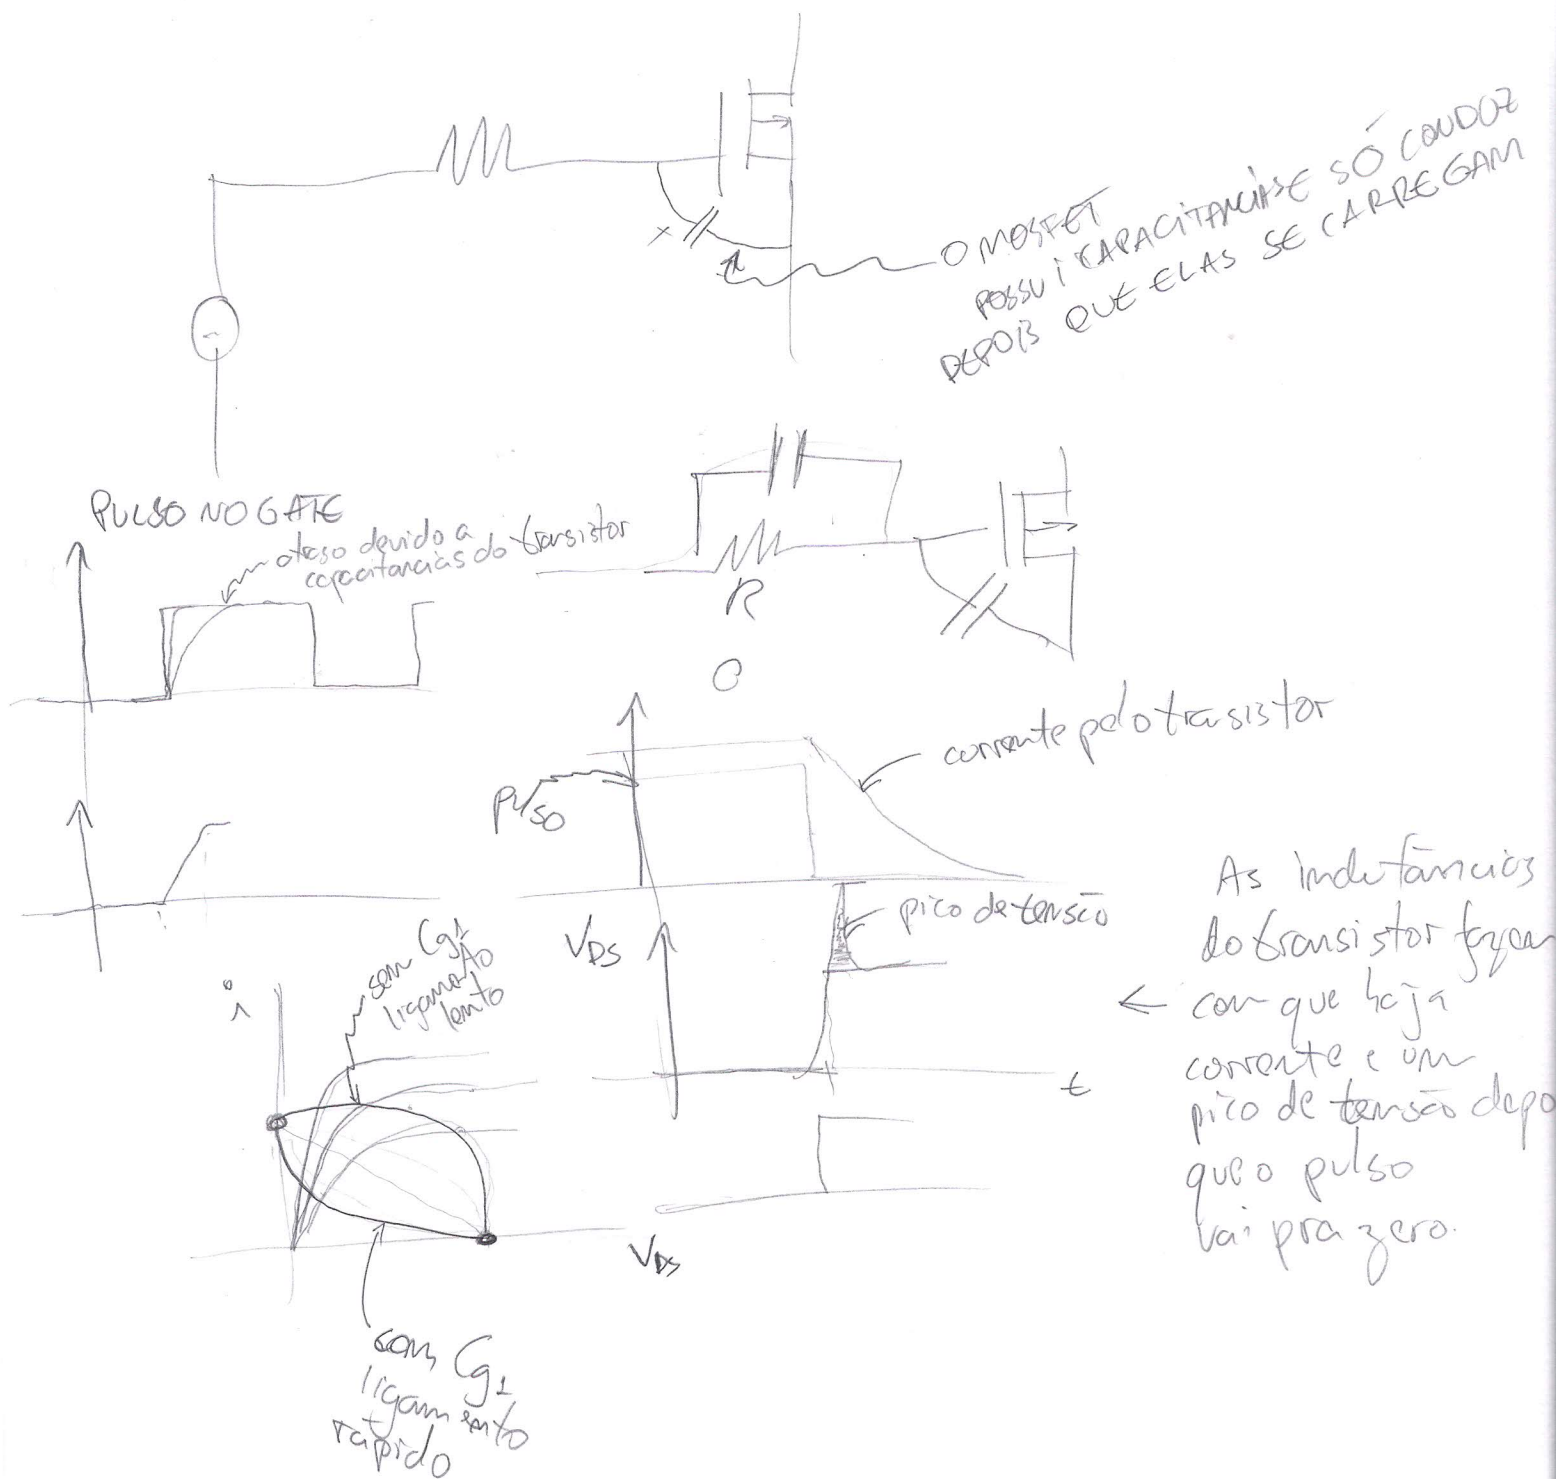 O MOSFET
POSSUI CAPACITANCIAS E SÓ CONDUZ
DEPOIS QUE ELAS SE CARREGAM
PULSO NO GATE
atraso devido a
capacitancias do transistor
R
C
corrente pelo transistor
pulso
pico de tensão
VDS
t
As indutâncias
do transistor fazem
com que haja
corrente e um
pico de tensão depo
que o pulso
vai pra zero.
i
sem Cg1
ligamento
lento
VDS
com Cg1
ligamento
rápido